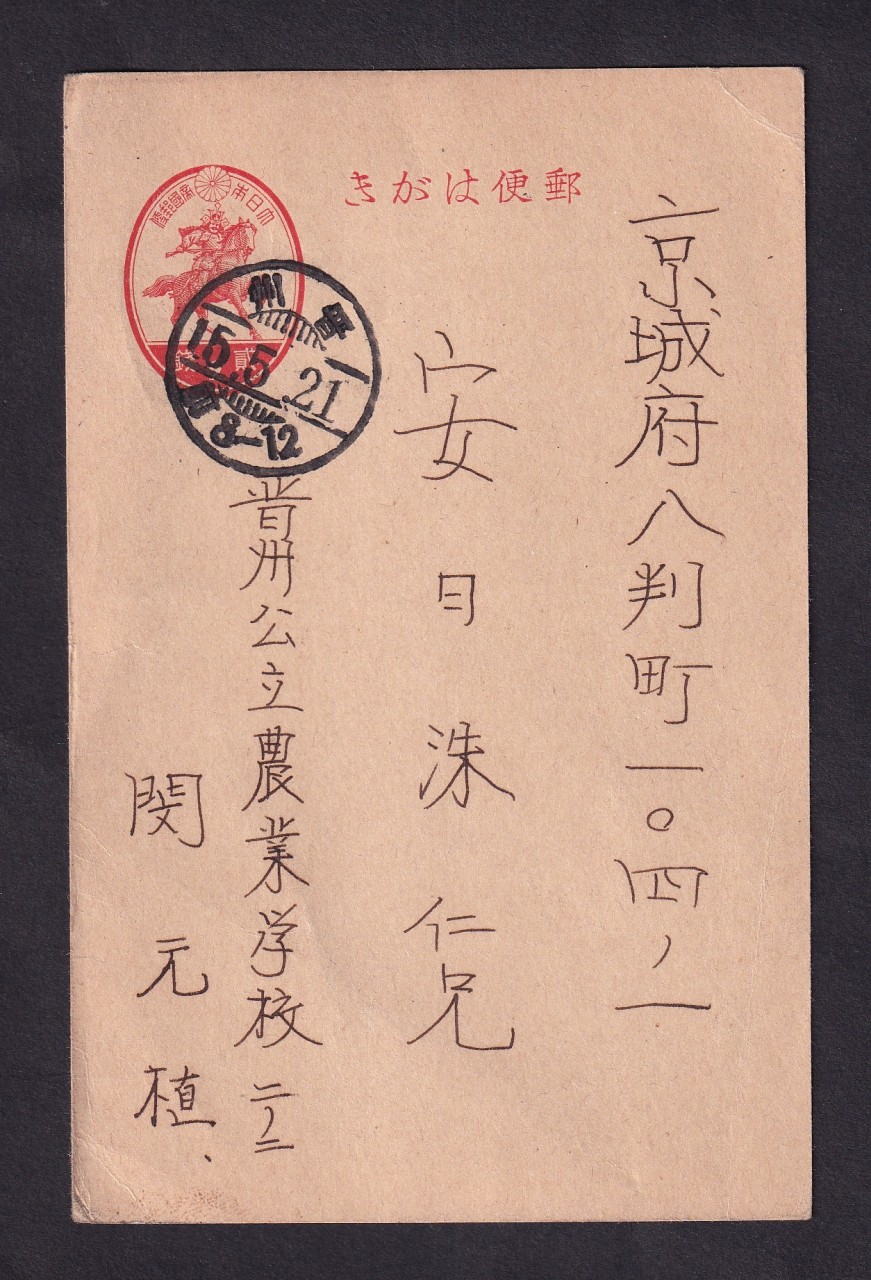 郵便はがき
大日本帝國郵便
京城府八判町一〇四ノ一
安日洙仁兄
晋州公立農業学校二ノ二
閔元植、
晋州
15.5.21
前8-12